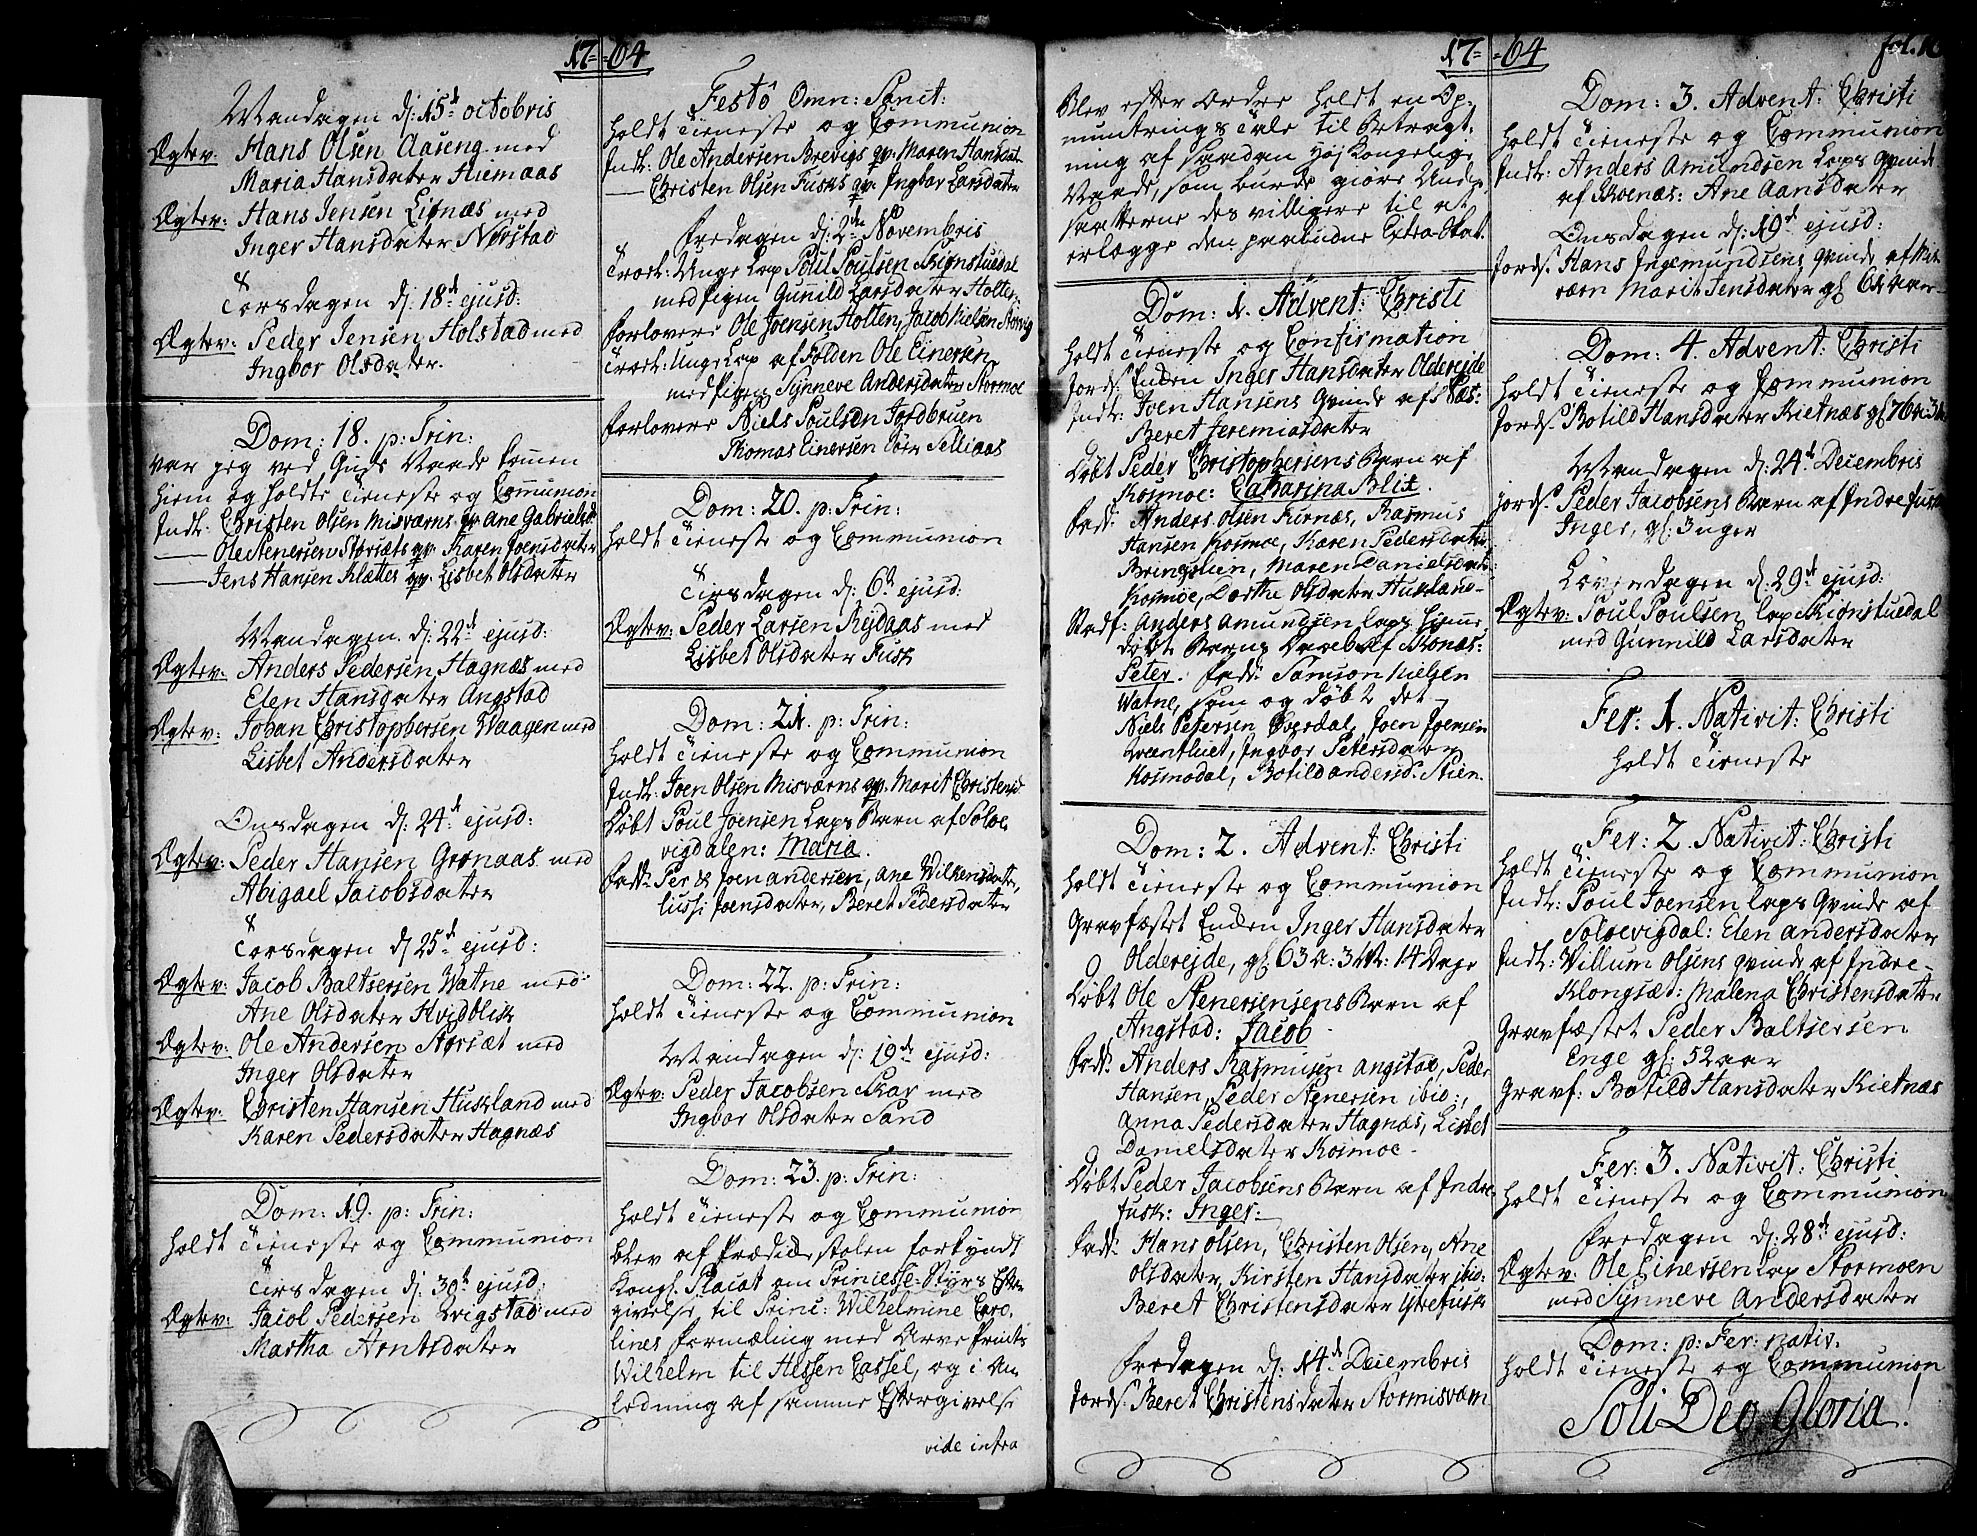 17=64
Mandagen dj: 15de octobris
Ægtev: Hans Olsen Aaseng med
Maria Hansdater Hiemaas
Ægtev: Hans Jensen Lignæs med
Inger Hansdater Nørstad
Torsdagen dj 18de ejusd:
Ægtev: Peder Jensen Holstad med
Ingbor Olsdater.
Dom: 18. p: Trin:
var jeg ved Guds Naade kommen
hiem og holdte Tieneste og Communion
Indl: Christen Olsen Misværns qv: Ane Gabrielsd:
— Ole Stenersen Storsæts qv: Karen Joensdater
— Jens Hansen Klættes qv: Lisbet Olsdater
Mandagen dj: 22de ejusd:
Ægtev: Anders Pedersen Hagnæs med
Elen Hansdater Angstad
Ægtev: Johan Christophersen Waagen med
Lisbet Andersdater
Onsdagen dj: 24de ejusd:
Ægtev: Peder Hansen Grønaas med
Abigael Jacobsdater
Torsdagen dj 25de ejusd:
Ægtev: Jacob Baltsersen Watne med
Ane Olsdater Hvidblik
Ægtev: Ole Andersen Storsæt med
Inger Olsdater
Ægtev: Christen Hansen Huskland med
Karen Pedersdater Hagnæs
Dom: 19. p: Trin:
holdt Tieneste og Communion
Tirsdagen dj 30te ejusd:
Ægtev: Jacob Pedersen Evigstad med
Martha Arntsdater
Festo Omn: Sanct:
holdt Tieneste og Communion
Indl: Ole Andersen Brevigs qv: Maren Hansdat:
— Christen Olsen Fusks qv: Ingbor Larsdater
Fredagen dj: 2den Novembris
Troel: Unge Lap Poul Poulsen Skionstuedal
med pigen Gunild Larsdater Holten
Forlovere Ole Joensen Holten, Jacob Nielsen Storvig
Troel: Unge Lap af Folden Ole Einersen
med pigen Synneve Andersdater Stormoe
Forlovere Niels Poulsen Jordbruen
Thomas Einersen Tørr Selliaas
Dom: 20. p: Trin:
holdt Tieneste og Communion
Tirsdagen dj: 6te ejusd:
Ægtev: Peder Larsen Rejdaas med
Lisbet Olsdater Fusk
Dom: 21. p: Trin:
holdt Tieneste og Communion
Indl: Joen Olsen Misværns qv: Marit Christensd
Døbt Poul Joensen Laps Barn af Soloe
vigdalen: Maria.
Fadd: Per & Joen andersen, Ane Wilkensdater,
Lissi Joensdater, Beret Pedersdater
Dom: 22. p: Trin:
holdt Tieneste og Communion
Mandagen dj: 19de ejusd:
Ægtev: Peder Jacobsen Skar med
Ingbor Olsdater Sand
Dom: 23. p: Trin:
holdt Tieneste og Communion
blev af Prædickestolen forkyndt
Kongl. Placat om Princesse-Styrs Efter
givelse til Princ: Wilhelmine Caro,
lines Formæling med Arve Prints
Wilhelm til Hessen Cassel, og i An
ledning af samme Eftergivelse
vide infra
17=64
fol. 10
Blev efter Ordre holdt en Op,
muntrings Tale til Betragt,
ning af saadan Høj Kongelig
Naade, som burde giøre Under
saatterne des villigere til at
erlægge den paabudne Extra-Skat.
Dom: 1. Advent: Christi
holdt Tieneste og Confirmation
Jords: Enken Inger Hansdater Oldereide
Indl: Joen Hansens Qvinde af Næs:
Beret Jeremiasdater
Døbt Peder Christophersens Barn af
Kosmoe: Catharina Blix.
Fadd: Anders Olsen Furnæs, Rasmus
Hansen Kosmoe, Karen Pedersdater
Bringslien, Maren Danielsdat:
Kosmoe, Dorthe Olsdater Huskland
Stadf: Anders Amundsen Laps hjemme
døbte Barns Daab af Skonæs:
Peter. Fadd: Samson Nielsen
Watne, som og døb 2 det
Niels Petersen Eversdal, Joen Joensen
Kvenfluet, Ingbor Petersdater
Kosmodal, Botild andersd: Stien.
Dom: 2. Advent: Christi
holdt Tieneste og Communion
Gravfæstet Enken Inger Hansdater
Oldereide, gl 63 a: 3 M: 14 Dage
Døbt Ole Stenersensens Barn af
Angstad: Jacob
Fadd: Anders Rasmusen Angstad, Peder
Hansen, Peder Stenersen ibid:,
Anna Pedersdater Hagnæs, Lisbet
Danielsdater Kosmoe.
Døbt Peder Jacobsens Barn af Indre
fusk: Inger.
Fadd: Hans Olsen, Christen Olsen, Ane
Olsdater, Kirsten Hansdater ibid:
Beret Christensdater Ytrefusk
Fredagen dj: 14de Decembris
Jords: Beret Christensdater Stormisværn
Dom: 3. Advent: Christi
holdt Tieneste og Communion
Indl: Anders Amundsen Laps Qvinde
af Skonæs: Ane Aansdater
Onsdagen dj: 19de ejusd:
Jords: Hans Ingemundsens Qvinde af Mis
værn Marit Jensdater gl 61 aar
Dom: 4. Advent: Christi
holdt Tieneste og Communion
Jords: Botild Hansdater Kietnæs gl 76 a: 3
Mandagen dj: 24de Decembris
Jords: Peder Jacobsens Barn af Indre fusk
Inger, gl: 3 uger
Løverdagen dj: 29de ejusd:
Ægtev: Poul Poulsen Lap Skionstuedal
med Gunnild Larsdater
Fer: 1. Nativit: Christi
holdt Tieneste
Fer: 2. Nativit: Christi
holdt Tieneste og Communion
Indl: Poul Joensen Laps Qvinde af
Soloevigdal: Elen Andersdater
Indl: Willum Olsens qvinde af Indre
Klongsæt: Malena Christensdater
Gravfæstet Peder Baltsersen
Enge gl: 52 aar
Gravf: Botild Hansdater Kietnæs
Fer: 3. Nativit: Christi
holdt Tieneste og Communion
Fredagen dj: 28de ejusd:
Ægtev: Ole Einersen Lap Stormoen
med Synneve Andersdater
Dom: p: Fer: nativ:
holdt Tieneste og Communion
Soli Deo Gloria!